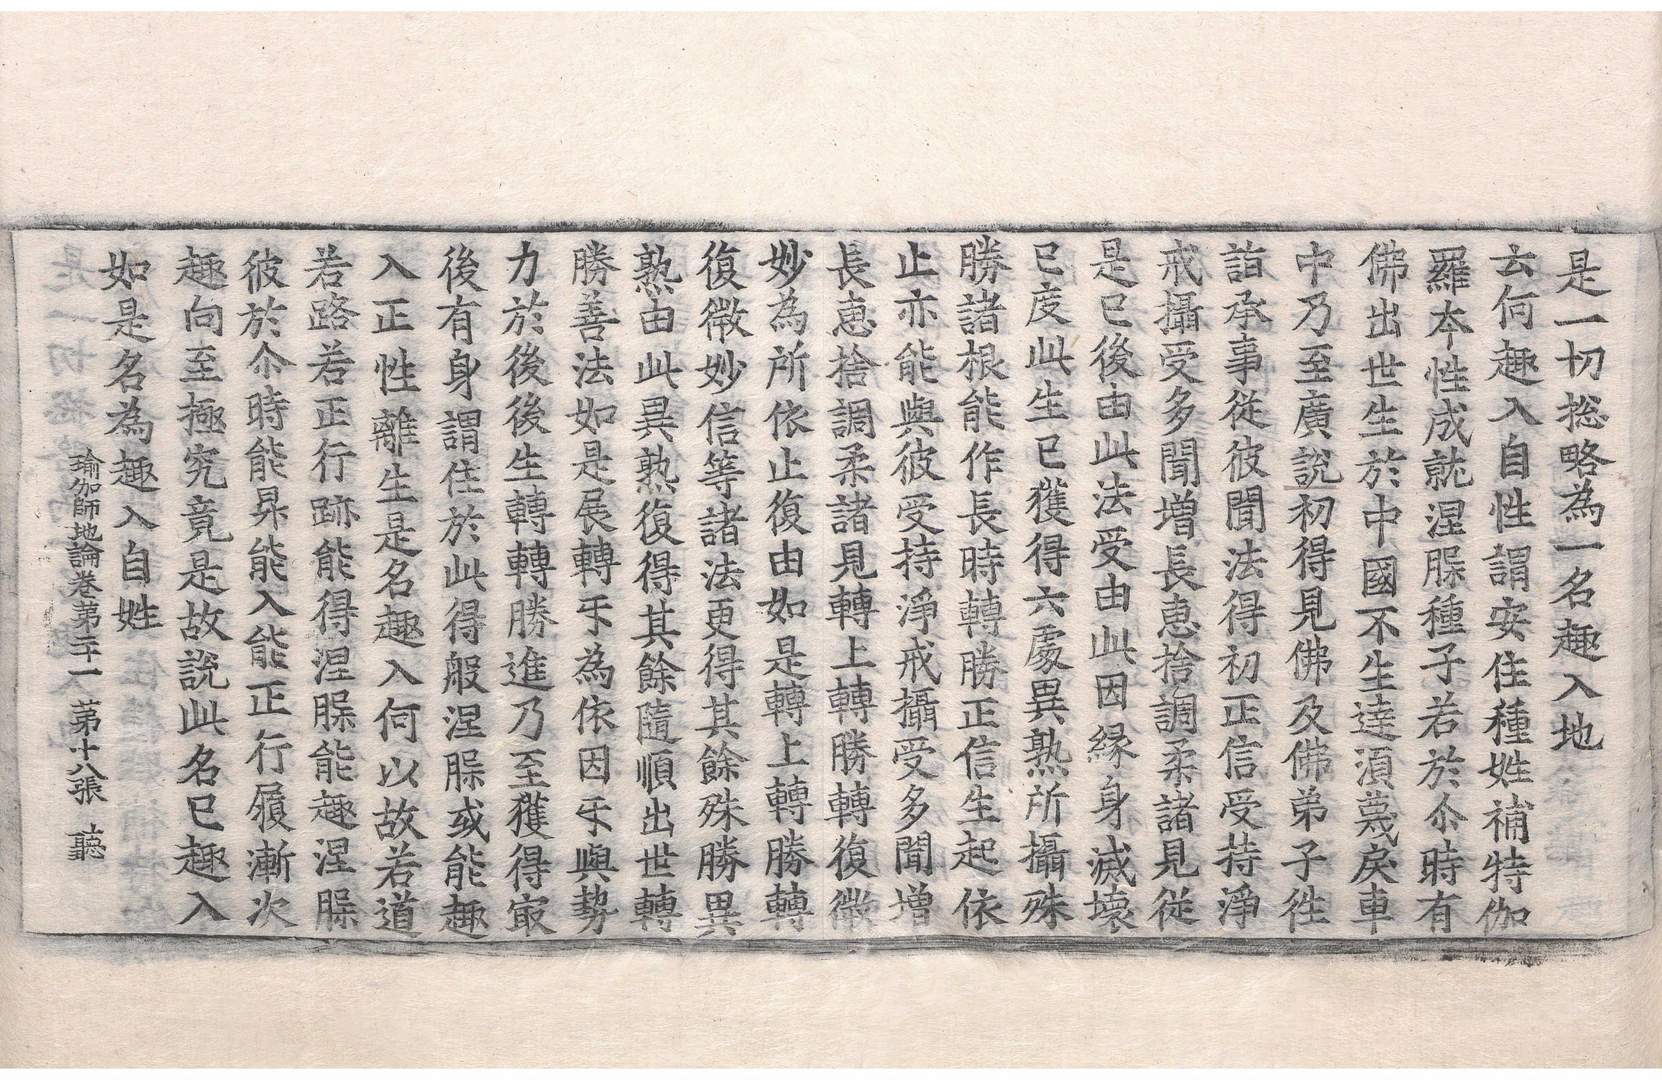 是一切揔略為一名趣入地
云何趣入自性謂安住種姓補特伽
羅夲性成就涅槃種子若於尒時有
佛出世生於中國不生達須蔑戾車
中乃至廣說初得見佛及佛弟子徃
詣承事從彼聞法得初正信受持淨
戒攝受多聞增長恵捨調柔諸見從
是已後由此法受由此因緣身滅壞
已度此生已獲得六處異熟所攝殊
勝諸根能作長時轉勝正信生起依
止亦能與彼受持淨戒攝受多聞增
長恵捨調柔諸見轉上轉勝轉復微
妙為所依止復由如是轉上轉勝轉
復微妙信等諸法更得其餘殊勝異
熟由此異熟復得其餘隨順出世轉
勝善法如是展轉㸦為依因㸦與勢
力於後後生轉轉勝進乃至獲得㝡
後有身謂住於此得般涅槃或能趣
入正性離生是名趣入何以故若道
若路若正行跡能得涅槃能趣涅槃
彼於尒時能昇能入能正行履漸次
趣向至極究竟是故說此名已趣入
如是名為趣入自姓
瑜伽師地論卷第二十一 第十八張 聽